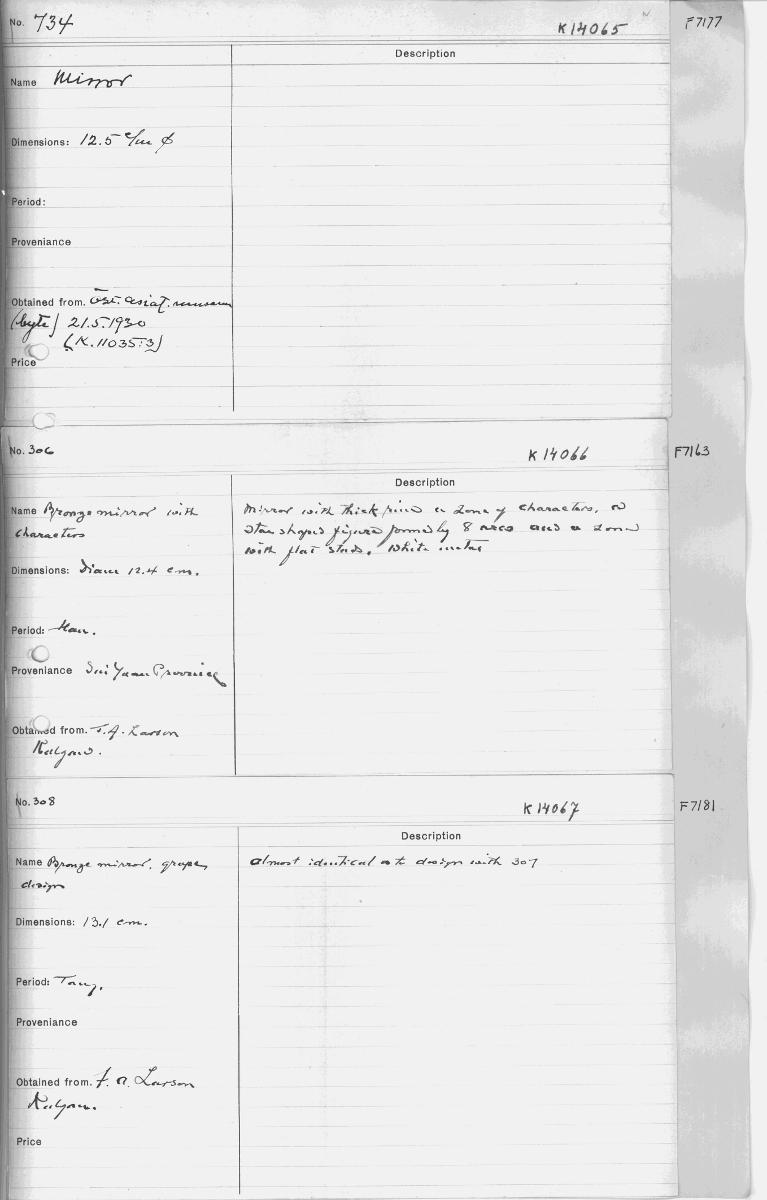 No. 734
K 14065
F 7177
Description
Name Mirror
Dimensions: 12.5 c/m φ
Period:
Proveniance
Obtained from. Öst. asiat. museum
(byte) 21.5.1930
(K.11035:3)
Price
No. 306
K 14066
F7163
Description
Name Bronze mirror with
characters
Mirror with thick rim a zone of characters, a
star shaped figure formed by 8 arcs and a zone
with flat studs. White metal
Dimensions: Diam 12.4 cm.
Period: Han.
Proveniance Sui Yuan Province
Obtained from. F. A. Larson
Kalgan.
No. 308
K 14067
F 7181
Description
Name Bronze mirror, grape
design
almost identical as to design with 307
Dimensions: 13.1 cm.
Period: Tang.
Proveniance
Obtained from. F. A. Larson
Kalgan.
Price